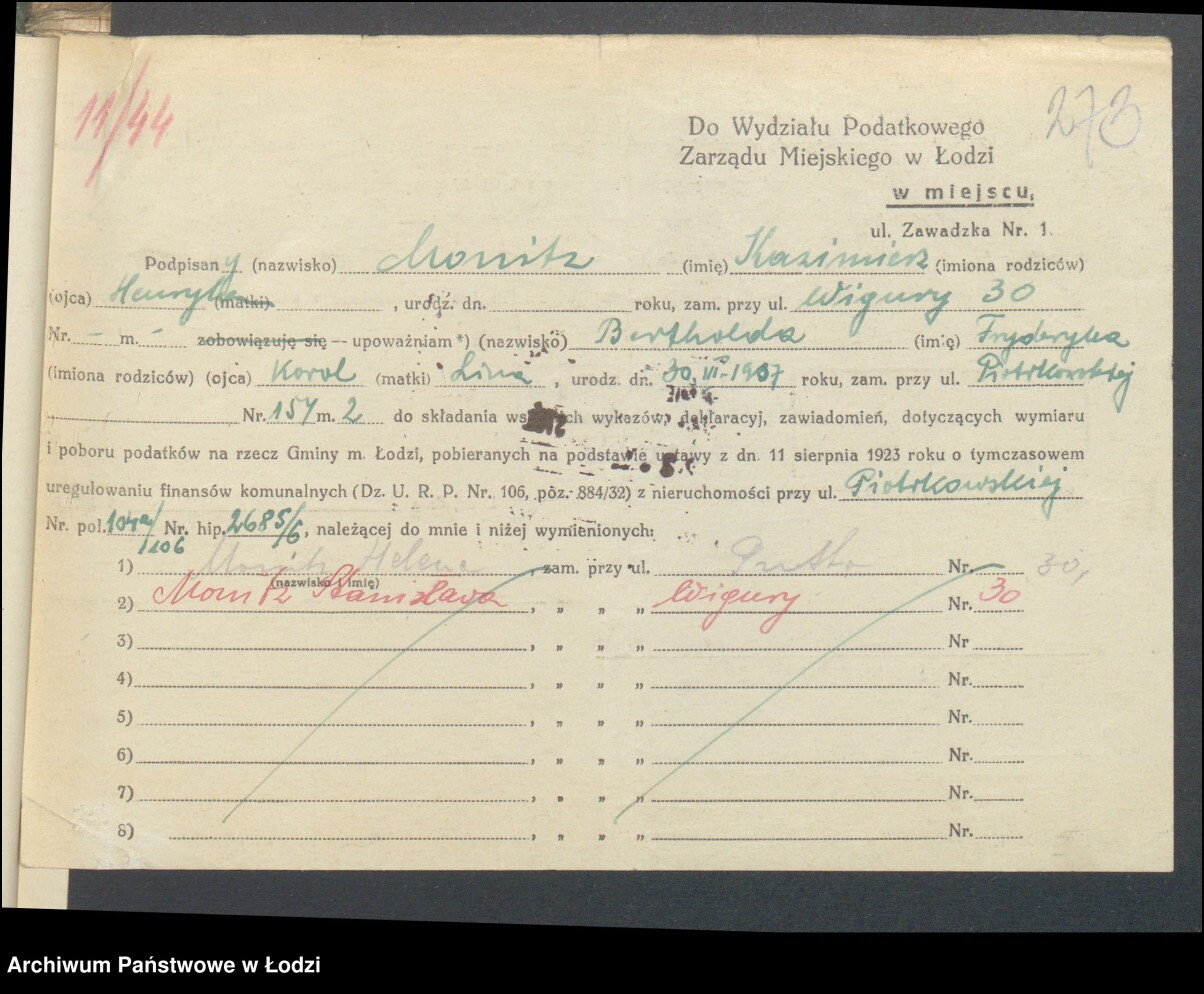 11/44
273
Do Wydziału Podatkowego
Zarządu Miejskiego w Łodzi
w miejscu,
ul. Zawadzka Nr. 1.
Podpisany (nazwisko) Monitz (imię) Kazimierz (imiona rodziców)
(ojca) Henryka (matki) , urodz. dn. roku, zam. przy ul. Wigury 30
Nr. - m. - zobowiązuję się — upoważniam *) (nazwisko) Bertholda (imię) Fryderyka
(imiona rodziców) (ojca) Karol (matki) Lina , urodz. dn. 30, VI-1907 roku, zam. przy ul. Piotrkowskiej
Nr. 157 m. 2 do składania wykazów, deklaracyj, zawiadomień, dotyczących wymiaru
i poboru podatków na rzecz Gminy m. Łodzi, pobieranych na podstawie ustawy z dn. 11 sierpnia 1923 roku o tymczasowem
uregulowaniu finansów komunalnych (Dz. U. R. P. Nr. 106, poz. 884/32) z nieruchomości przy ul. Piotrkowskiej
Nr. pol. 104a/106 Nr. hip. 2685/6, należącej do mnie i niżej wymienionych:
1) Monitz Helena , zam. przy ul. Nr. 30,
(nazwisko i imię)
2) Monitz Stanisława , „ „ „ Wigury Nr. 30
3) , „ „ „ Nr
4) , „ „ „ Nr.
5) , „ „ „ Nr.
6) , „ „ „ Nr.
7) , „ „ „ Nr.
8) , „ „ „ Nr.
Archiwum Państwowe w Łodzi